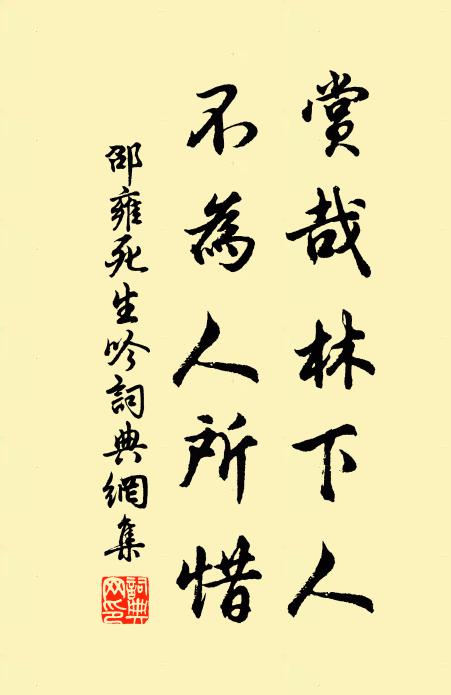 賞哉林下人
不為人所惜
邵雍死生吟詞典網集
詞典網印